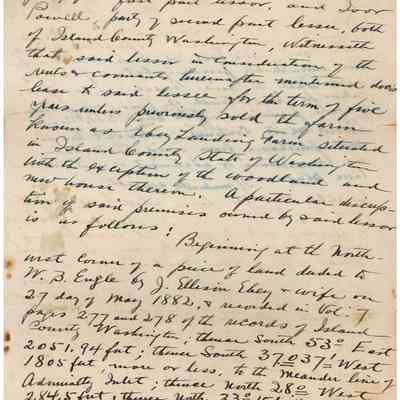 first part lessor, and
Powell party of second part lessee, both
of Island County Washington, Witnesseth
that said lessor in consideration of the
rents & covenants hereinafter mentioned does
lease to said lessee for the term of five
years unless previously sold the farm
known as Landing Farm situated
in Island County State of Washington
with the exception of the woodland and
new house thereon. A particular descrip-
tion of said premises owned by said lessor
is as follows:
Beginning at the North-
west corner of a piece of land deeded to
W. B. Engle by J. Ellison Ebey & wife on
27 day of May 1882, & recorded in Vol. 7
pages 277 and 278 of the records of Island
County Washington; thence South 53° East
2051.94 feet; thence South 37°037' West
1805 feet, more or less, to the Meander line of
Admiralty Inlet; thence North 28° West
2845 feet; thence North